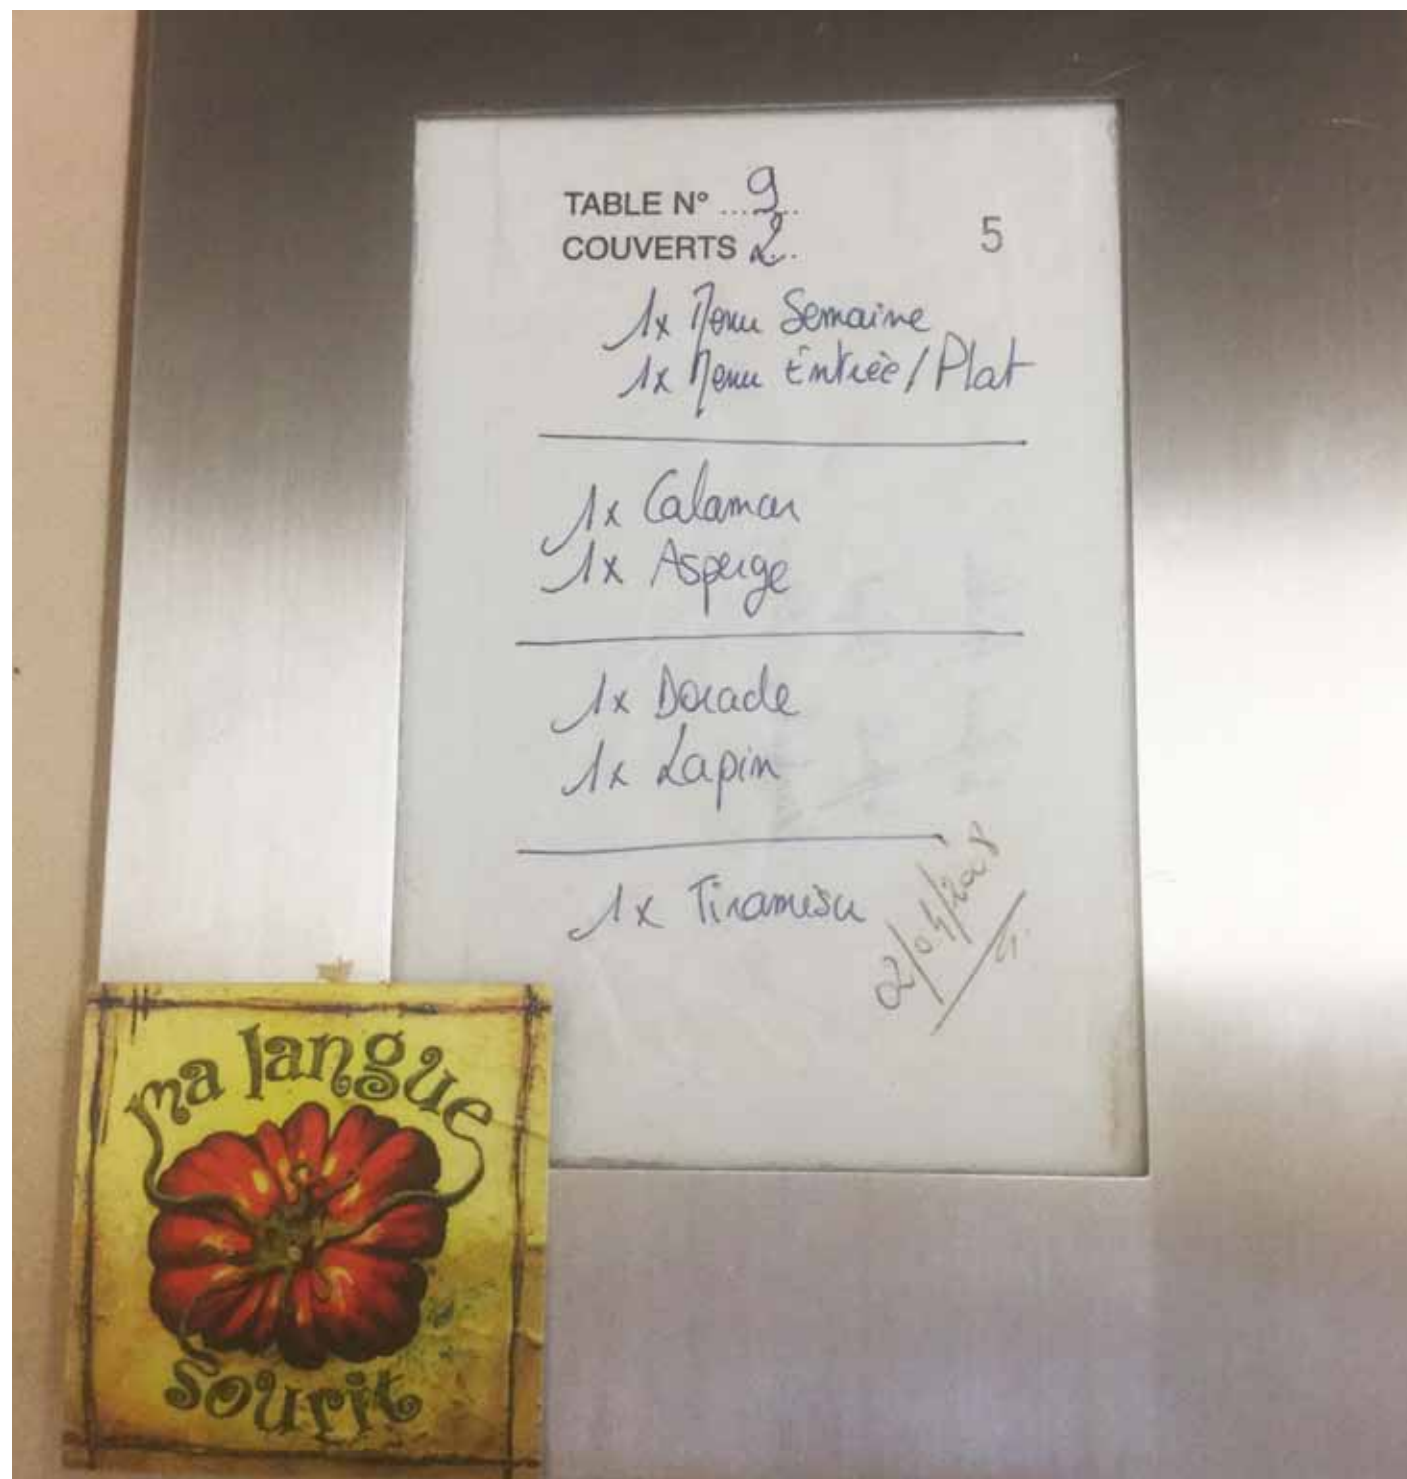 TABLE N° 9
COUVERTS 2
5
1x Menu Semaine
1x Menu Entrée/Plat
1x Calamar
1x Asperge
1x Dorade
1x Lapin
1x Tiramisu
02/04/2018
ma langue
sourit